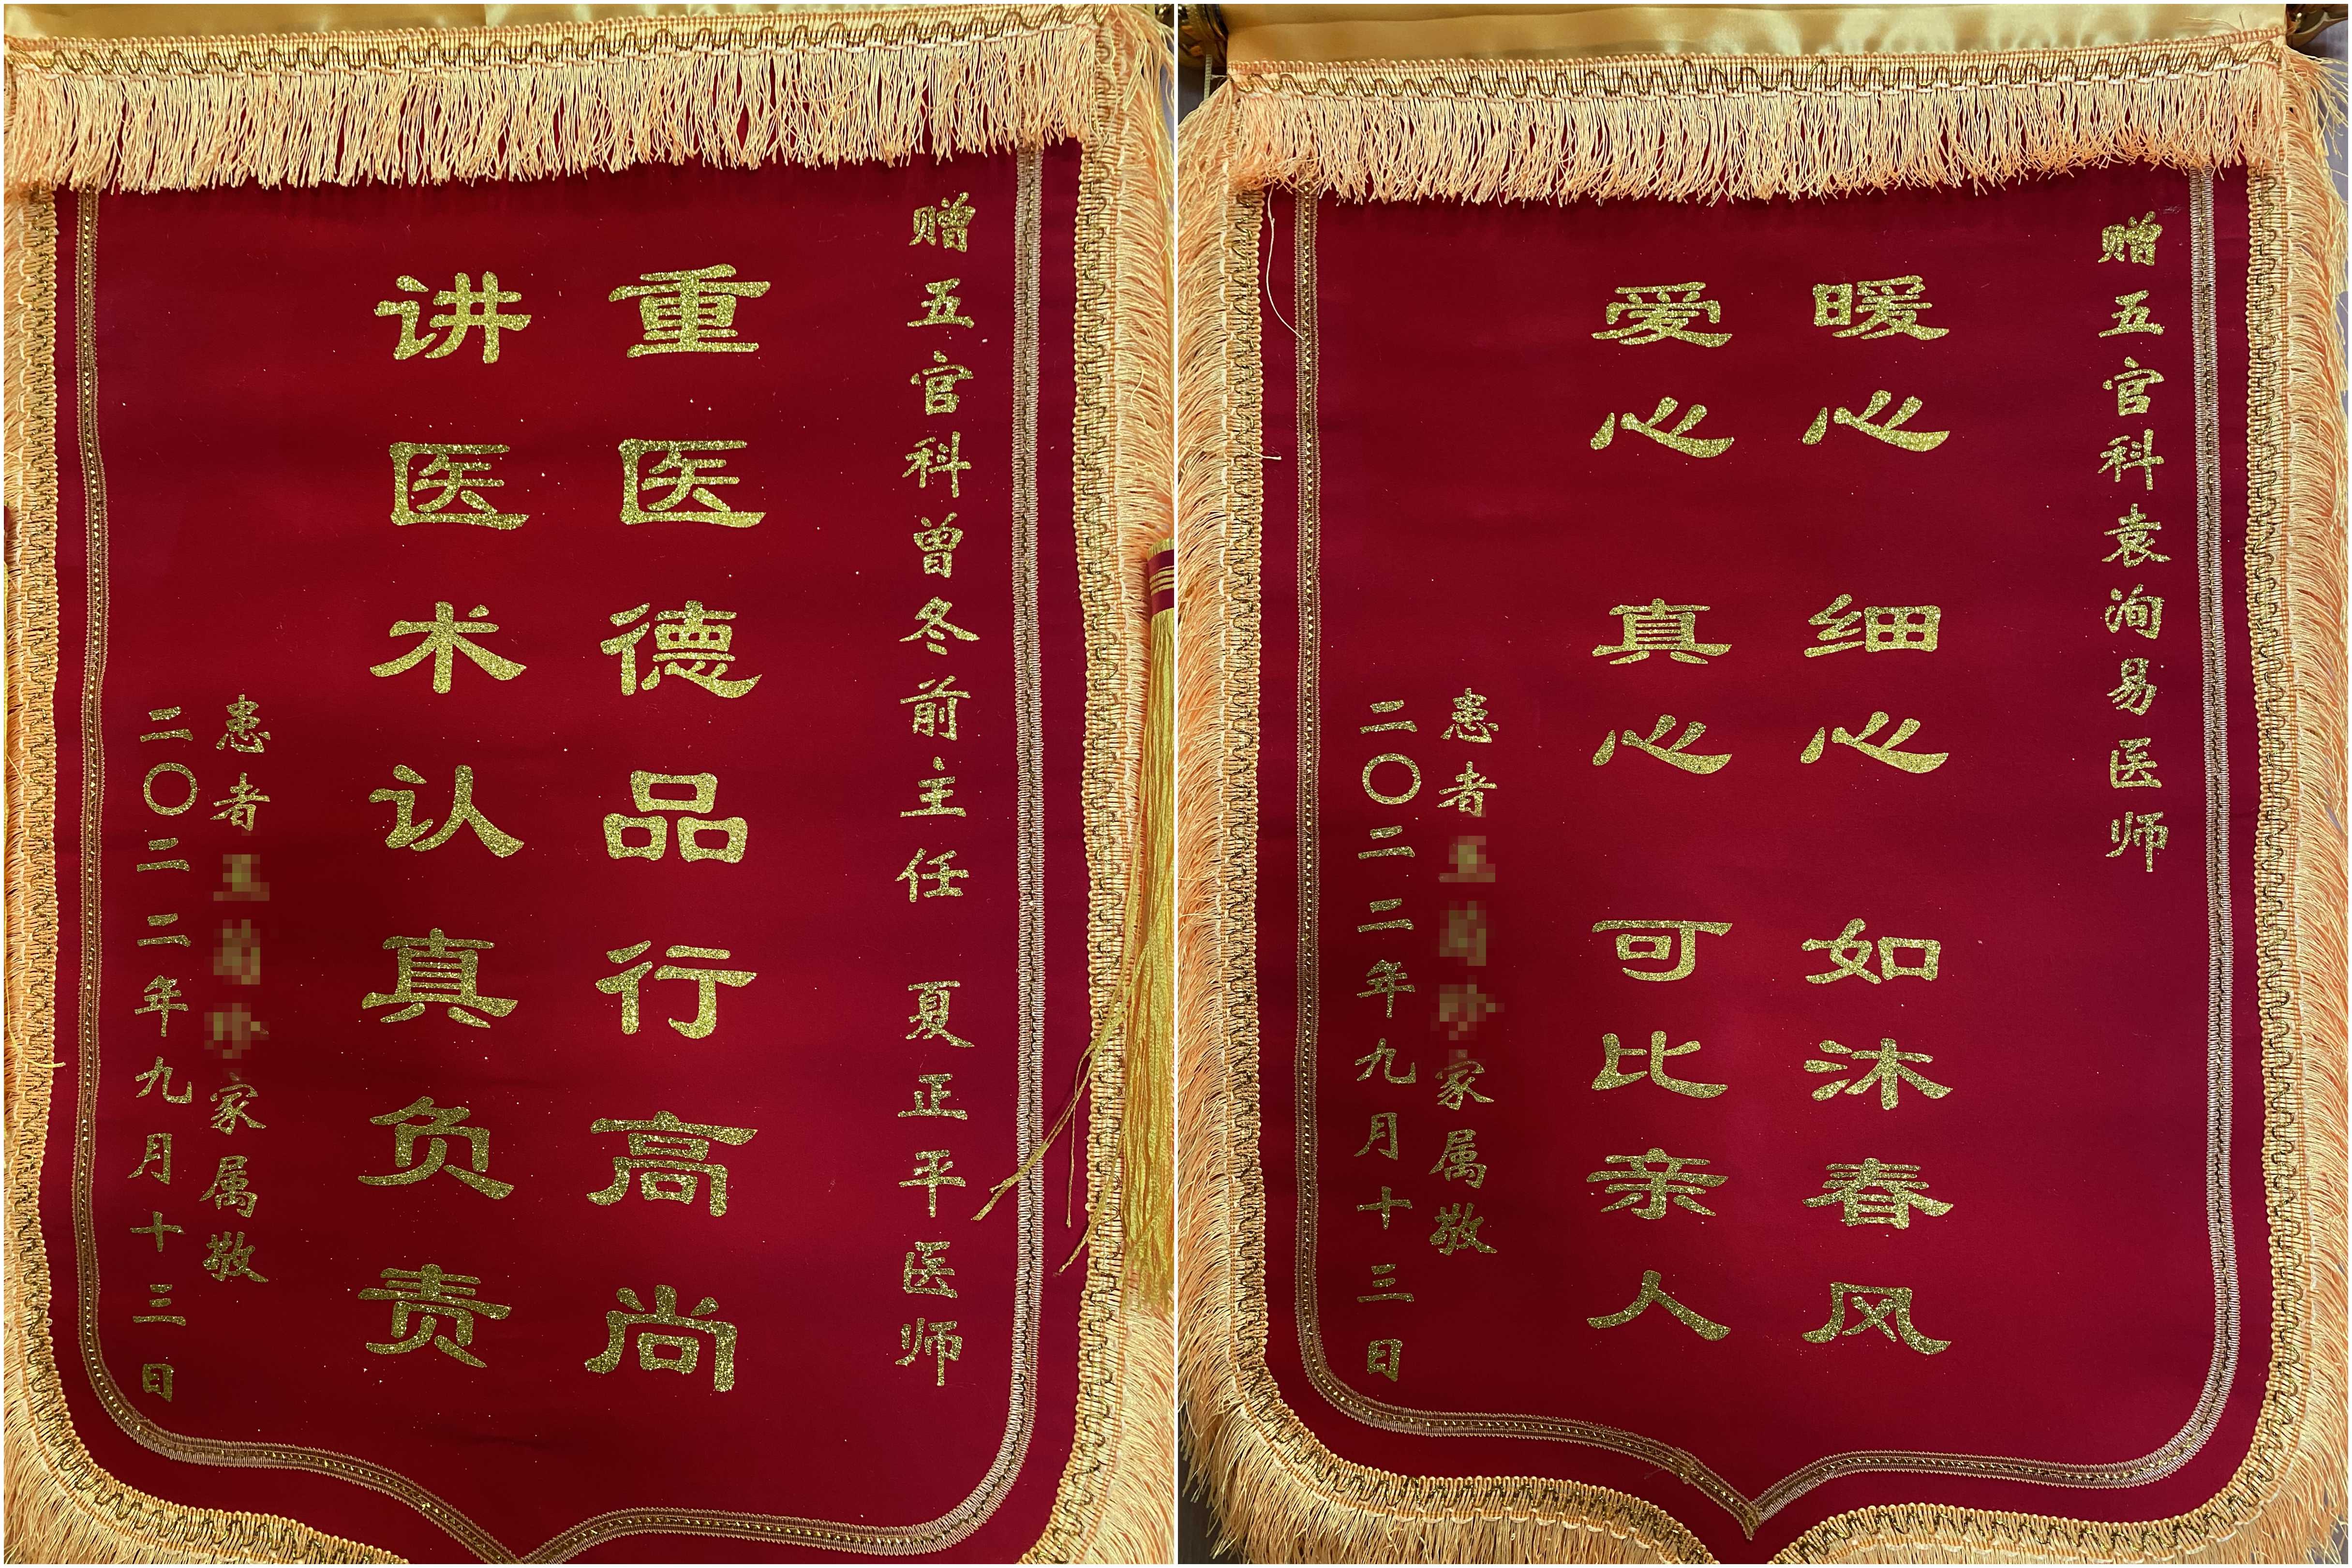 赠五官科曾冬前主任 夏正平医师
重医德品行高尚
讲医术认真负责
患者
家属敬
二〇二二年九月十三日
赠五官科袁洵易医师
暖心 细心 如沐春风
爱心 真心 可比亲人
患者
家属敬
二〇二二年九月十三日